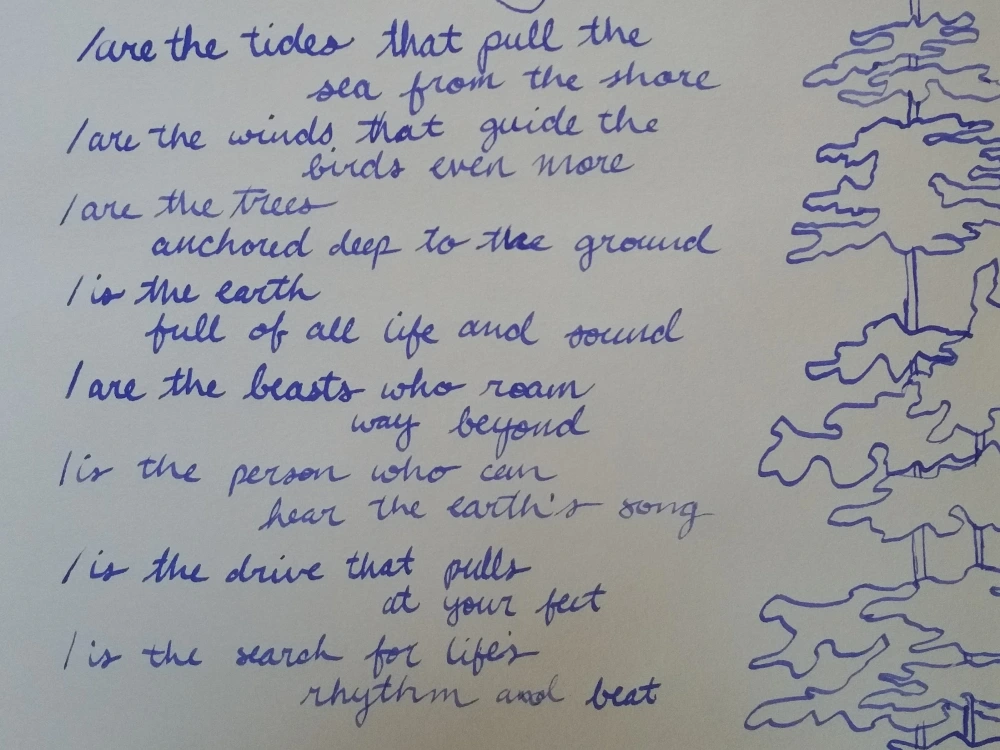 /are the tides that pull the
sea from the shore
/are the winds that guide the
birds even more
/are the trees
anchored deep to the ground
/is the earth
full of all life and sound
/are the beasts who roam
way beyond
/is the person who can
hear the earth's song
/is the drive that pulls
at your feet
/is the search for life's
rhythm and beat